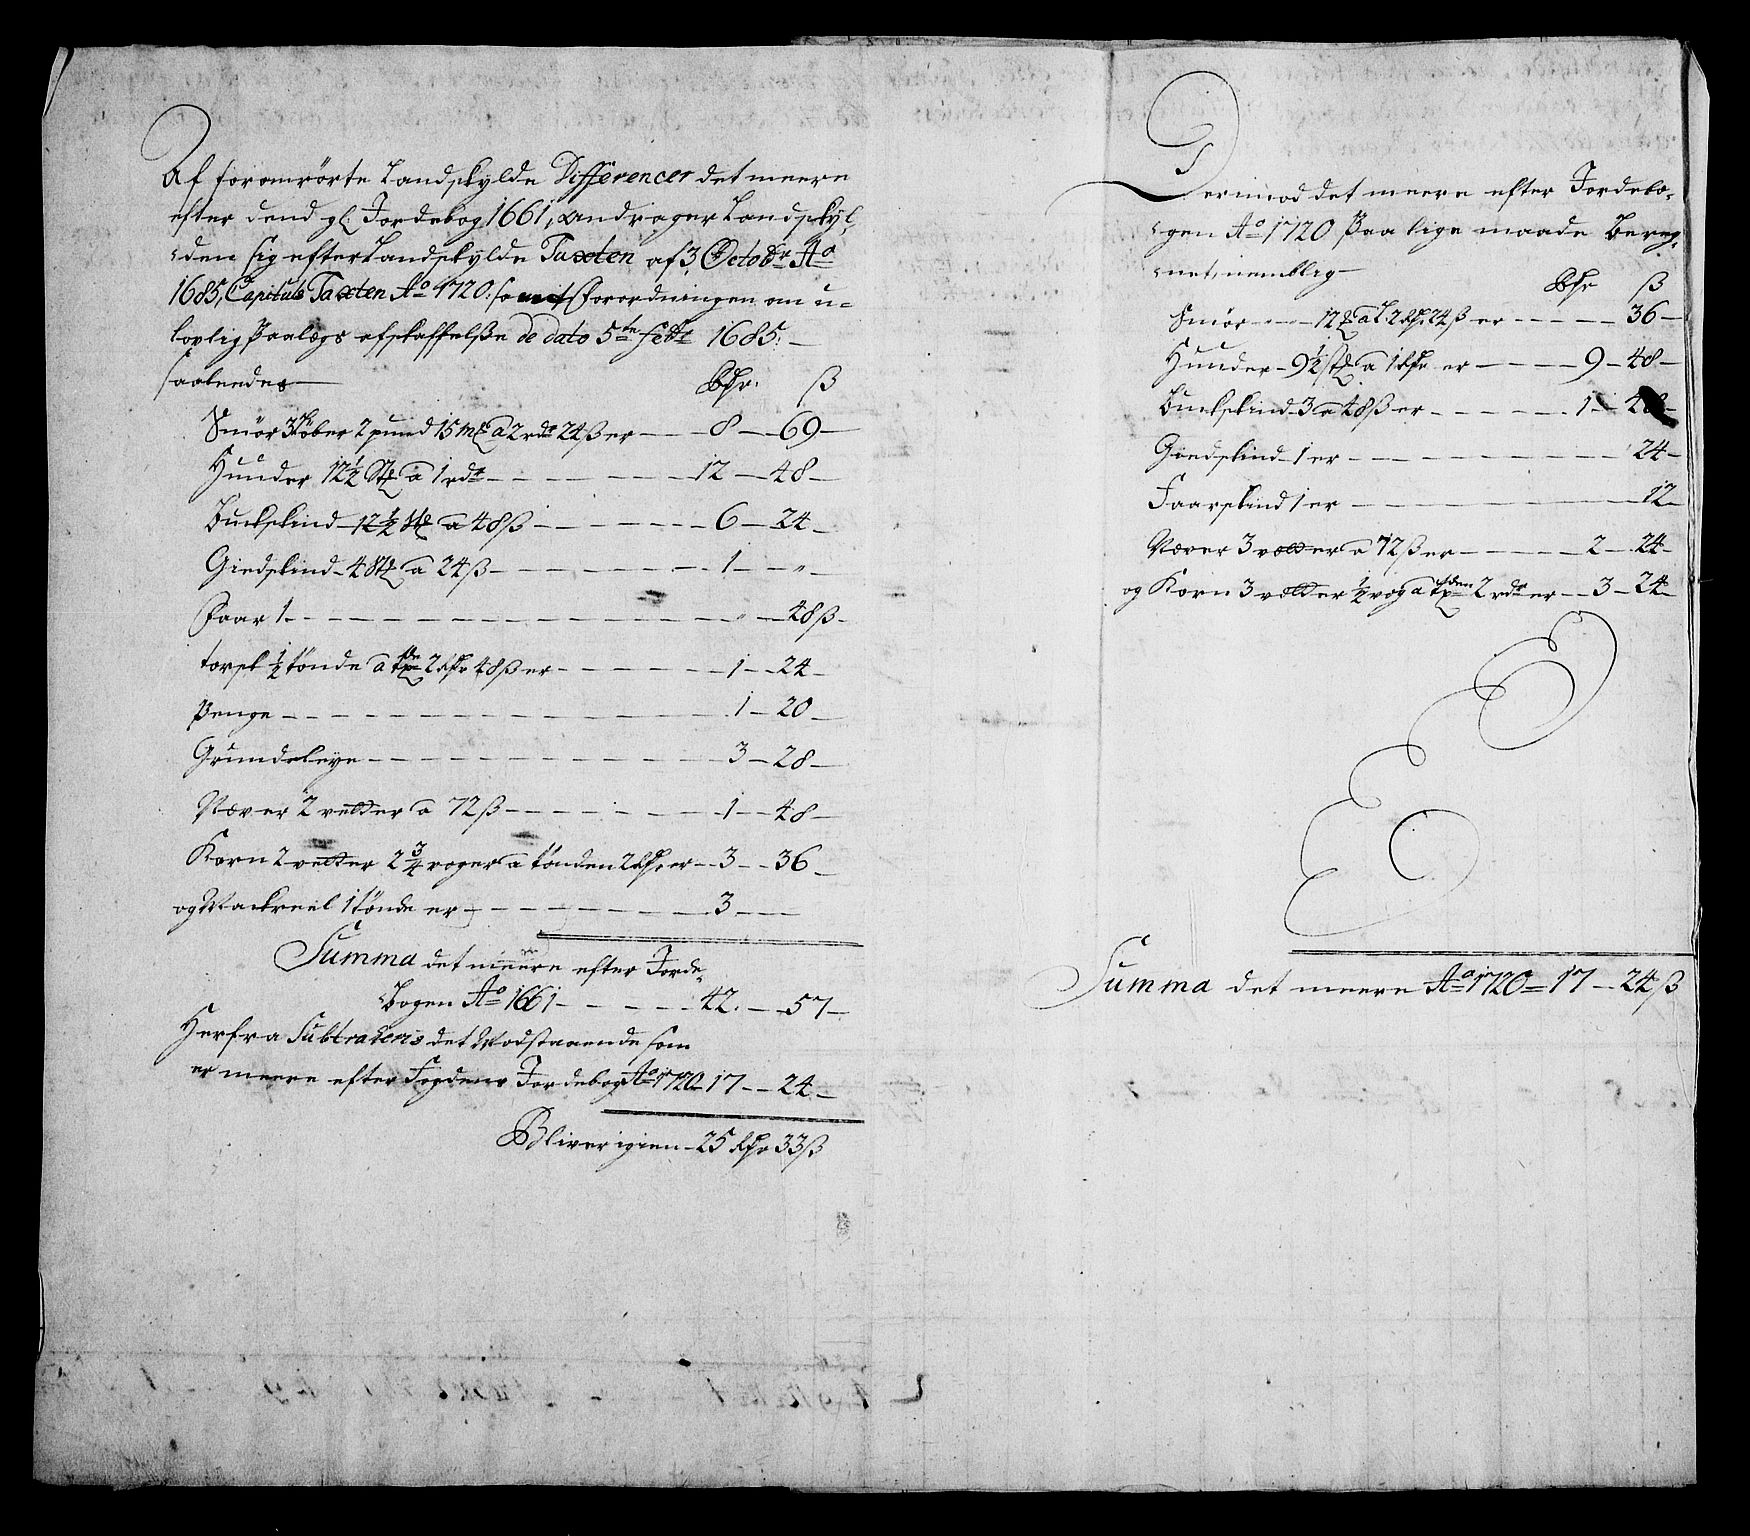 Af foromrörte Landskylde Differencer det meere
efter dend gl. Jordebog 1661, andrager Landskyl-
den sig efter Landskylde Taxten af 3 Octobr Ao
1685, Capituls Taxten Ao 1720. samt Forordningen om u-
lovlig Paalægs afskaffelße de dato 5te Febr 1685:
saaledes
Rdr. ß
Smör 3 Löber 2 pund 15 mk a 2 rdr 24 ß er 8 69
Huuder 12 1/2 Stk a 1 rdr 12 48
Buckskind 12 1/2 Stk a 48 ß 6 24
Giedskind 4 Stk a 24 ß 1 "
Faar 1 " 48 ß
torsk 1/2 tönde a tden 2 Rdr 48 ß er 1 24
Penge 1 20
Grundeleye 3 28
Næver 2 vetter a 72 ß 1 48
Korn 2 vetter 2 3/4 voger a tönden 2 Rdr er 3 36
og Mackreel 1 tönde er 3
Summa det meere efter Jorde-
Bogen Ao 1661 42. 57
Herfra Subtraheris det Modstaaende som
er meere efter Fogdens Jordebog Ao 1720 17 24
Bliver igien 25 Rdr 33 ß
Derimod det meere efter Jordebo-
gen Ao 1720 Paa lige maade Bereg-
net, nemblig
Rdr ß
Smör 12 mk a L 2 Rdr 24 ß er 36
Huuder 9 1/2 stk a 1 Rdr er 9 48
Buckskind 3 a 48 ß er 1 48
Giedskind 1 er 24
Faarskind 1 er 12
Næver 3 vetter a 72 ß er 2 24
og Korn 3 vetter 1/2 vog a tden 2 rdr er 3 24
Summa det meere Ao 1720 17 24 ß